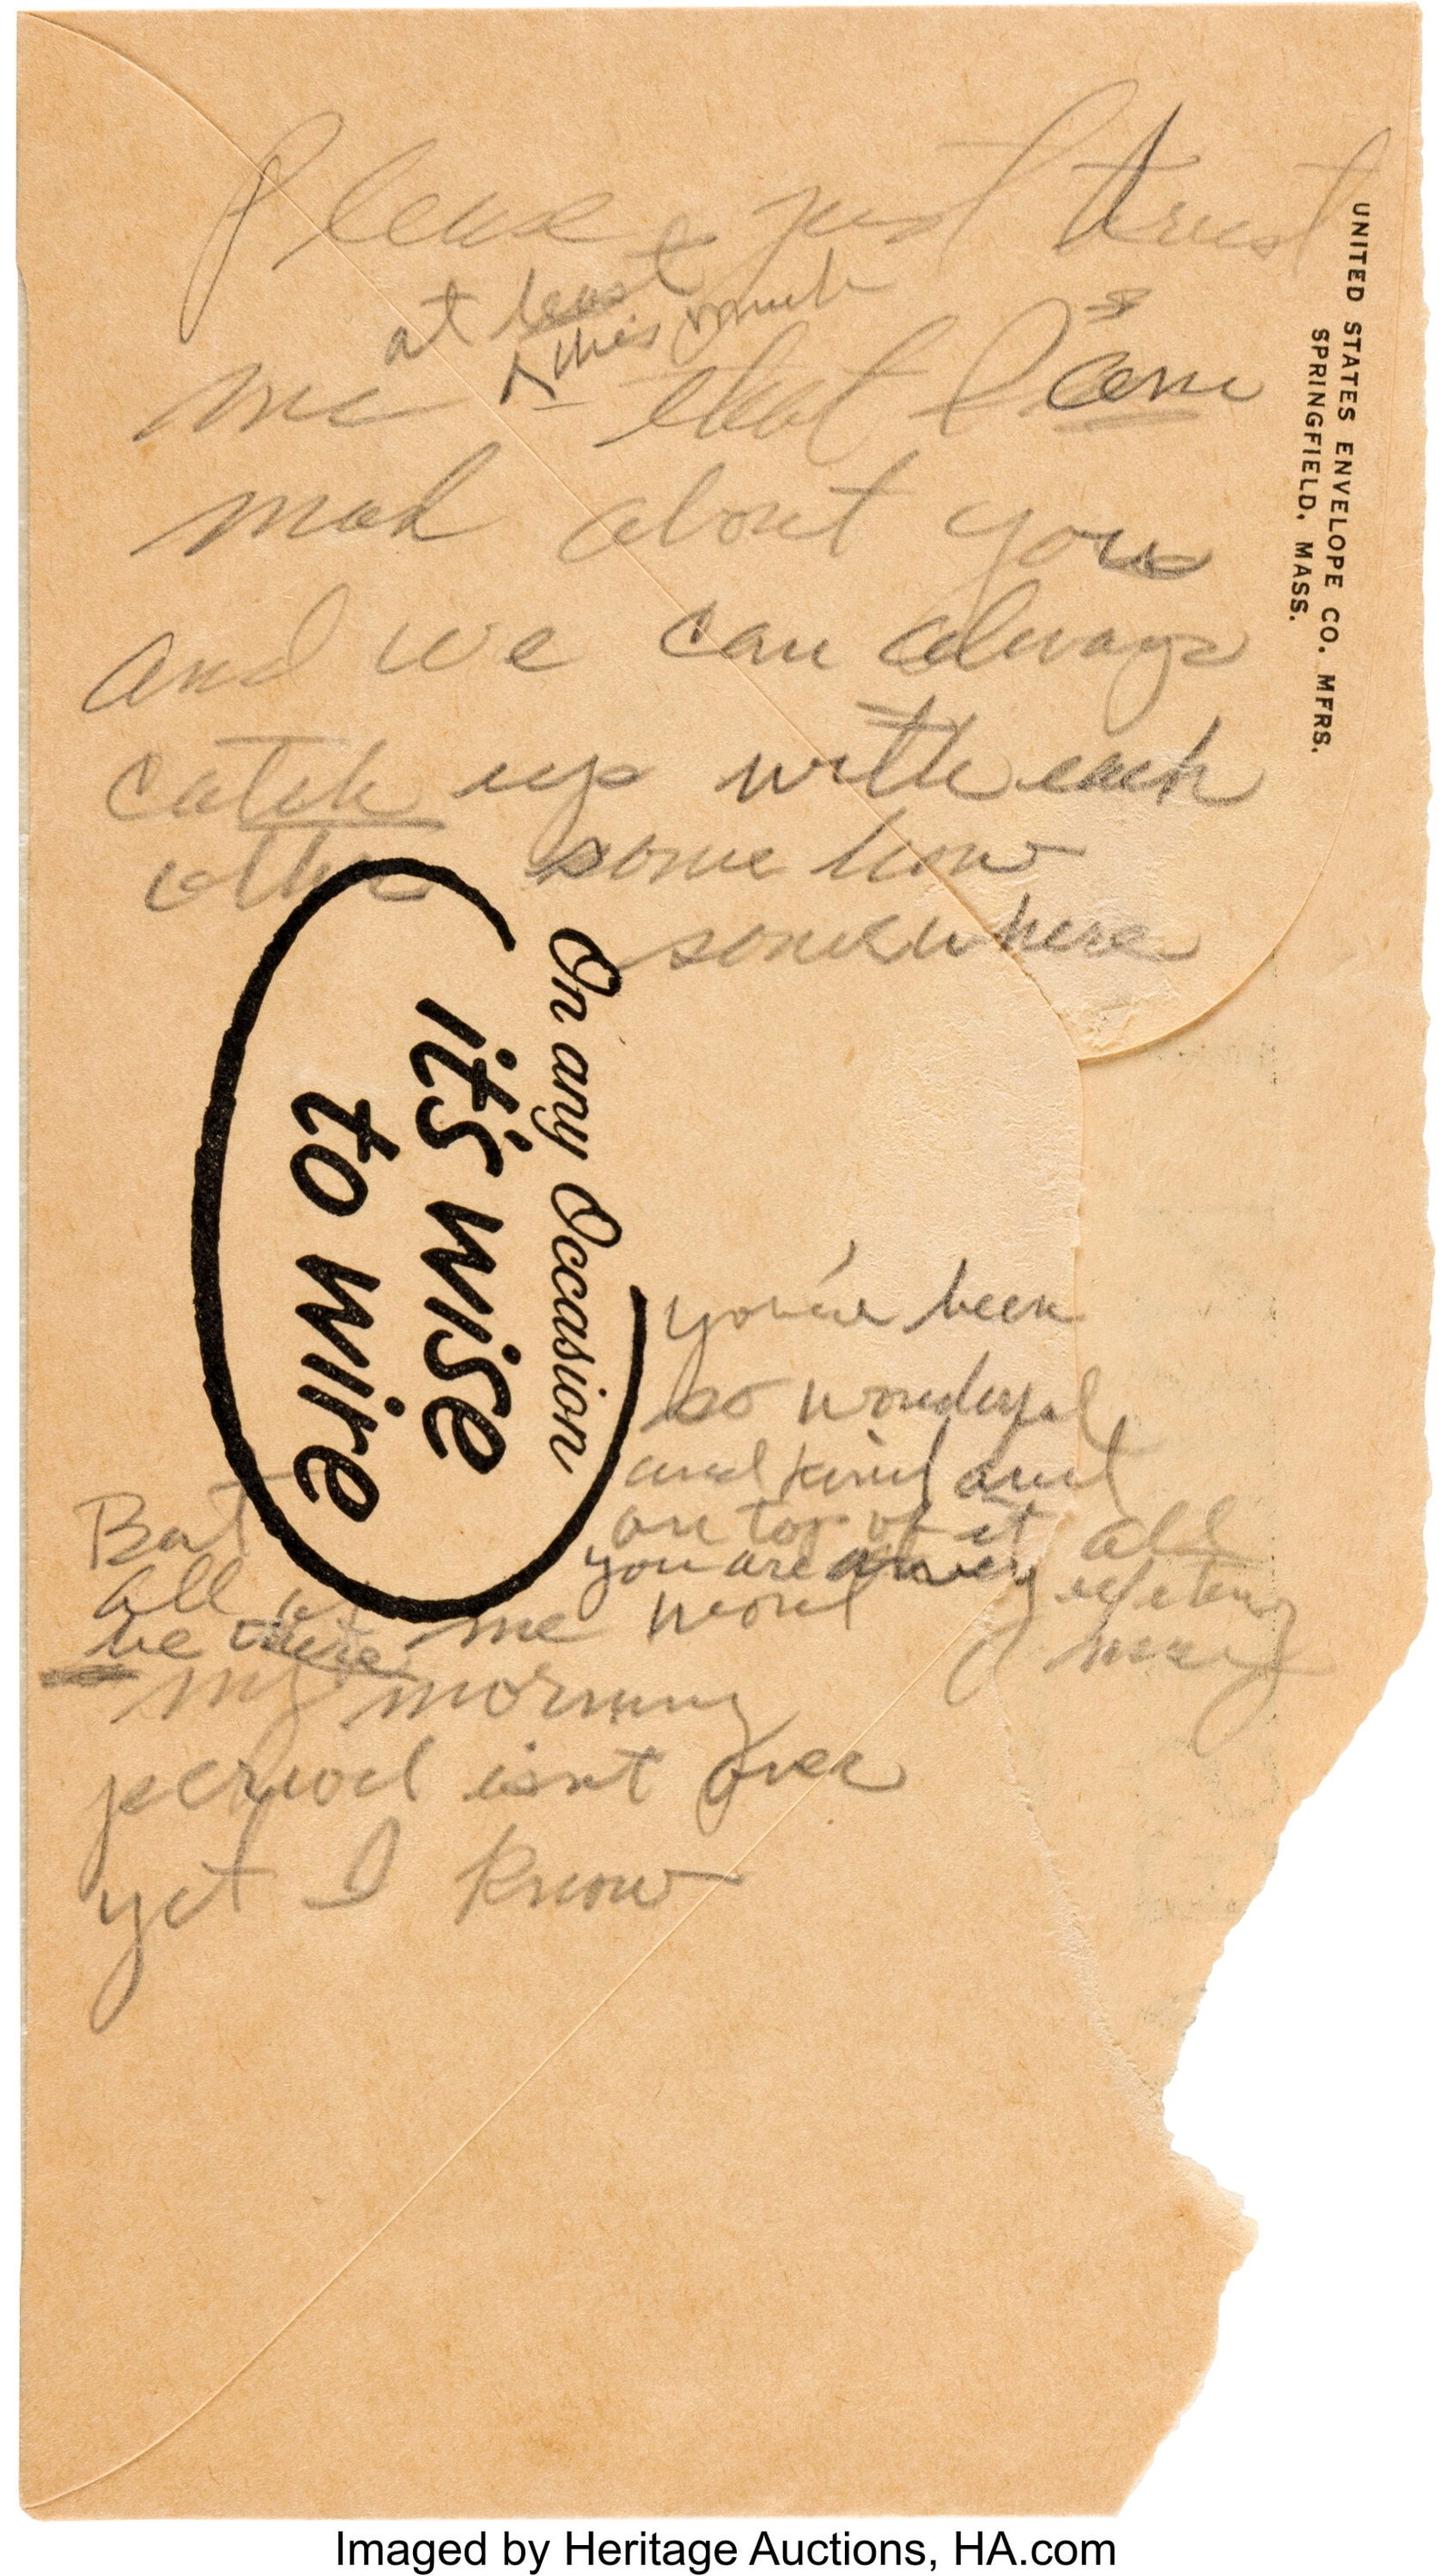 Please just trust
at least this much
me that I am
mad about you
and we can always
catch up with each
other some how
somewhere
UNITED STATES ENVELOPE CO. MFRS.
SPRINGFIELD, MASS.
On any Occasion
it's wise
to wire
you've been
so wonderful
and kind and
on top of it all
you are
But
all
be there me
my morning
period isnt over
yet I know
Imaged by Heritage Auctions, HA.com